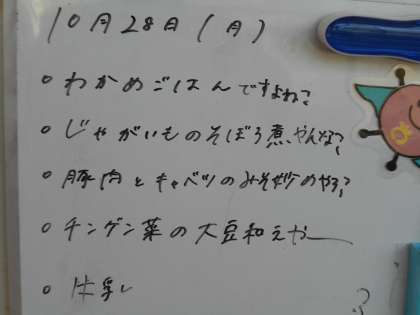 10月28日(月)
○ わかめごはんですよね?
○ じゃがいものそぼろ煮やんな?
○ 豚肉とキャベツのみそ炒めやろ?
○ チンゲン菜の大豆和えやー
○ 牛乳